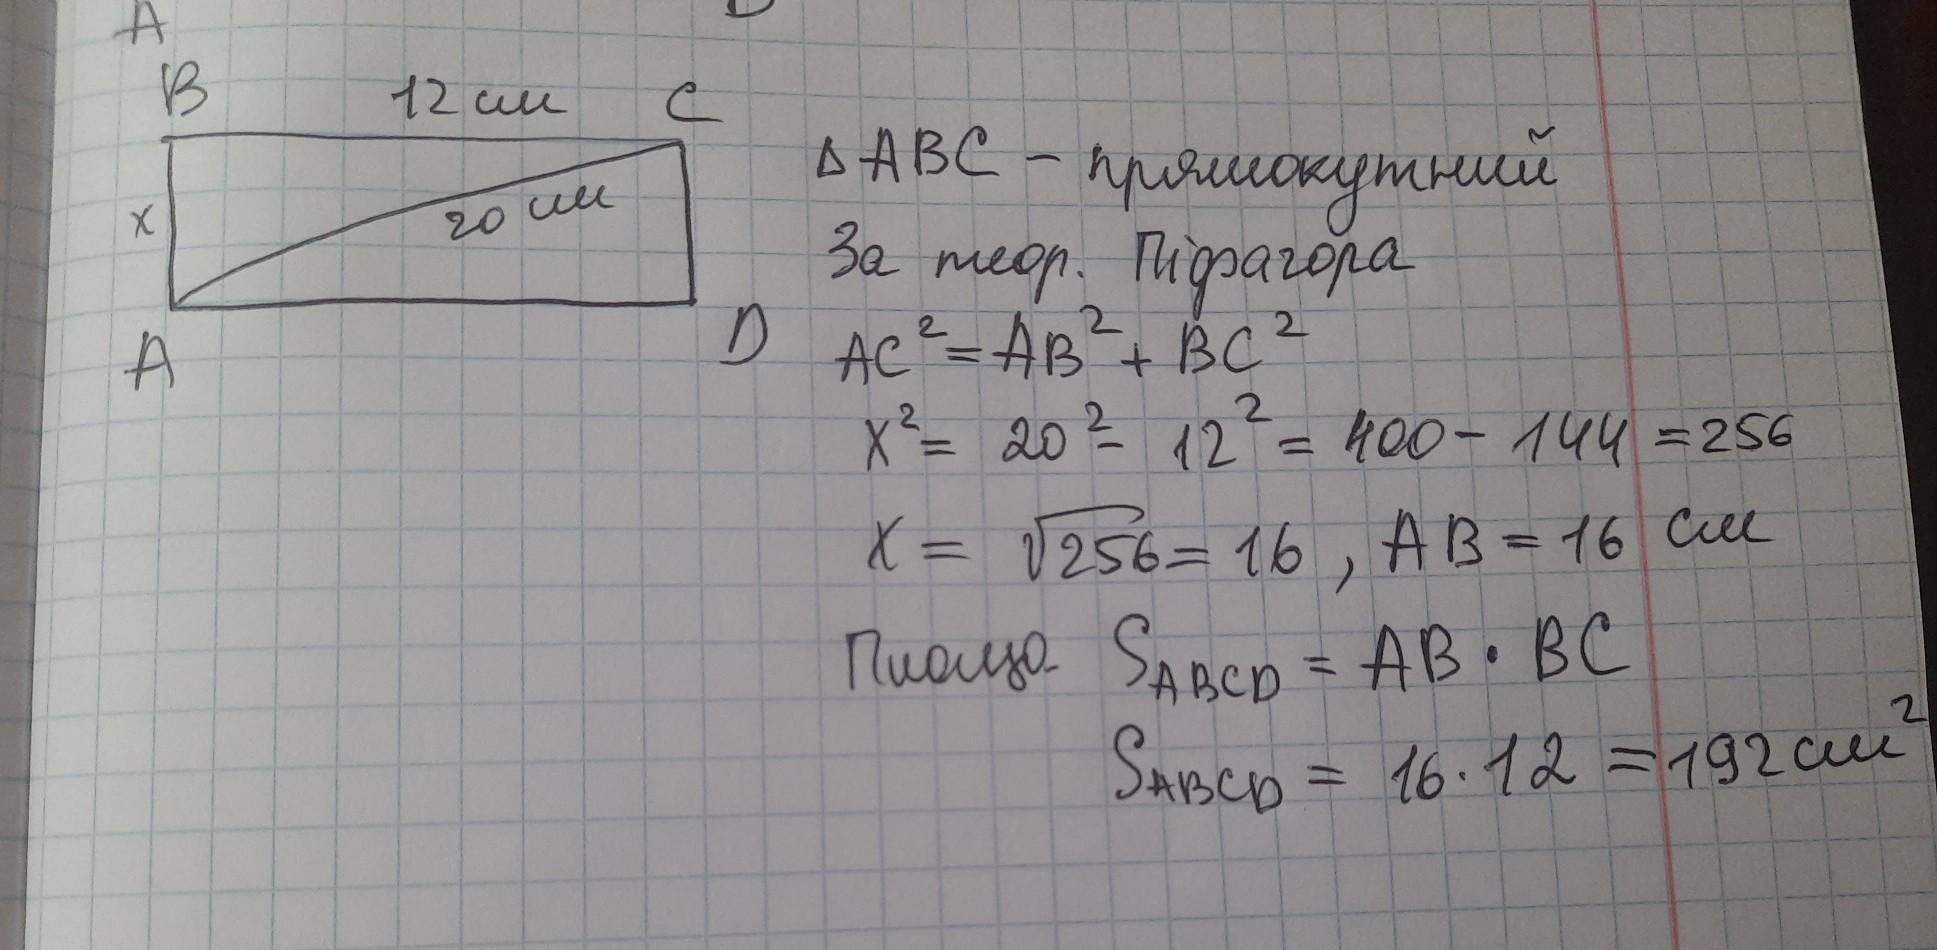 A
B 12 см C
x 20 см
A D
Δ ABC – прямокутний
За теор. Піфагора
AC² = AB² + BC²
x² = 20² - 12² = 400 - 144 = 256
x = √256 = 16 , AB = 16 см
Площа S_ABCD = AB · BC
S_ABCD = 16 · 12 = 192 см²